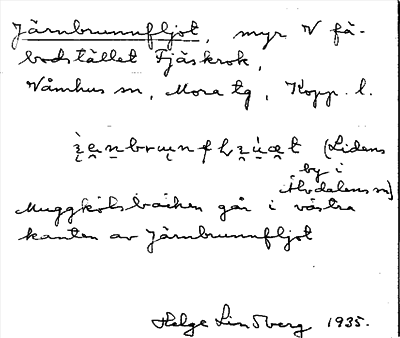 Järnbrunnfljot, myr V fä-
bodstället Fjäskrok,
Våmhus sn, Mora tg, Kopp. l.
(Lidens
by i
Älvdalens sn)
Muggkölsbäcken går i västra
kanten av Järnbrunnfljot
Helge Lindberg 1935.